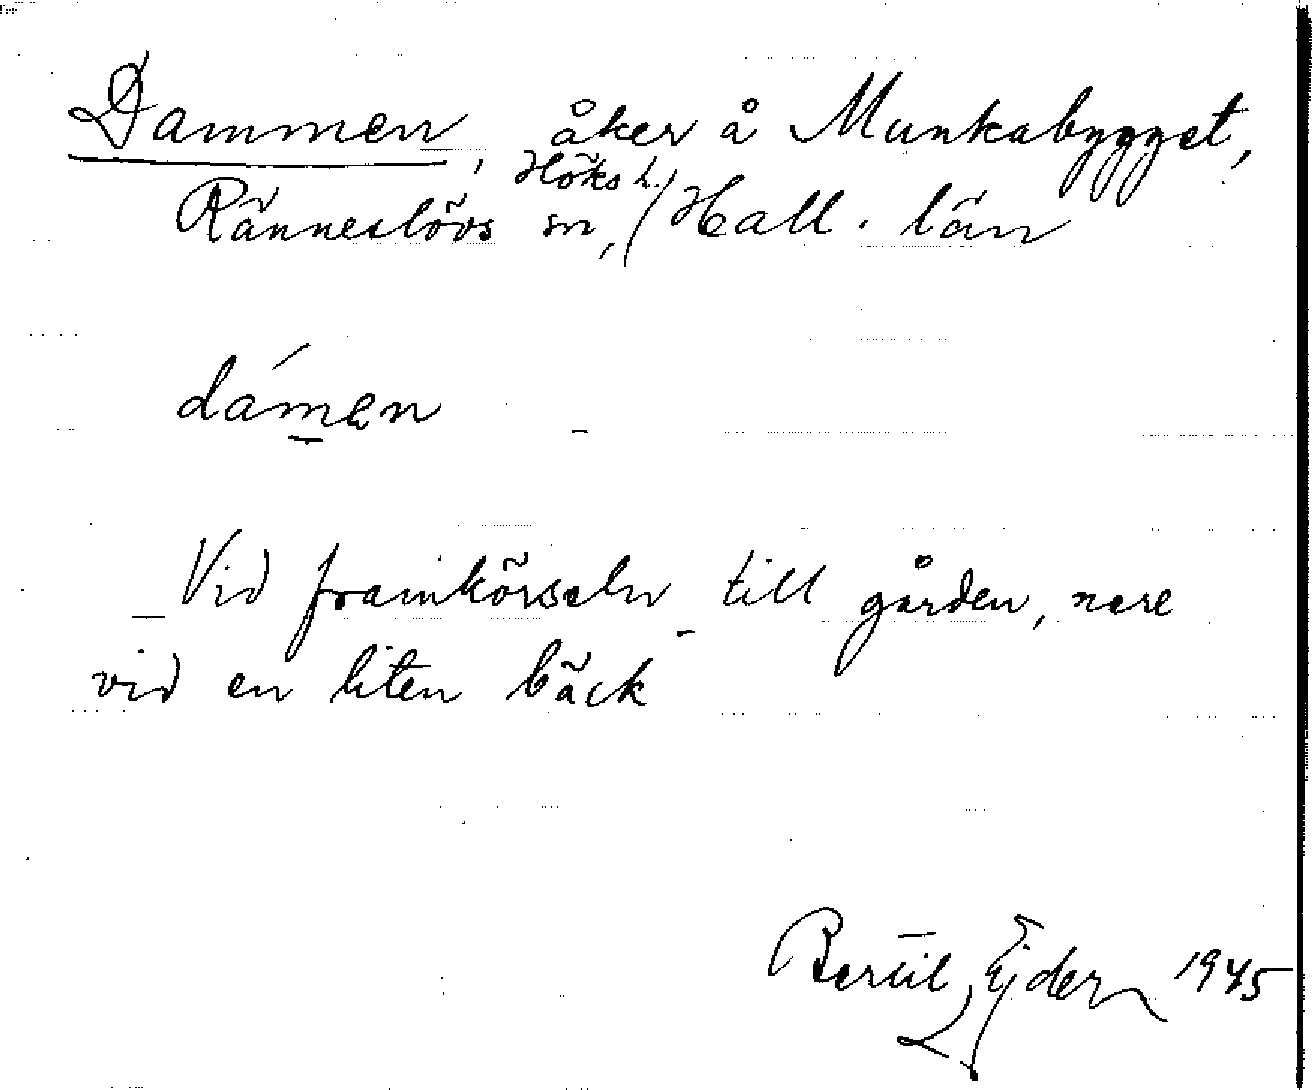 Dammen, åker å Munkabygget,
Ränneslövs sn, Höks h. / Hall. län
dámen
Vid framkörseln till gården, nere
vid en liten bäck
Bertil Ejder 1945